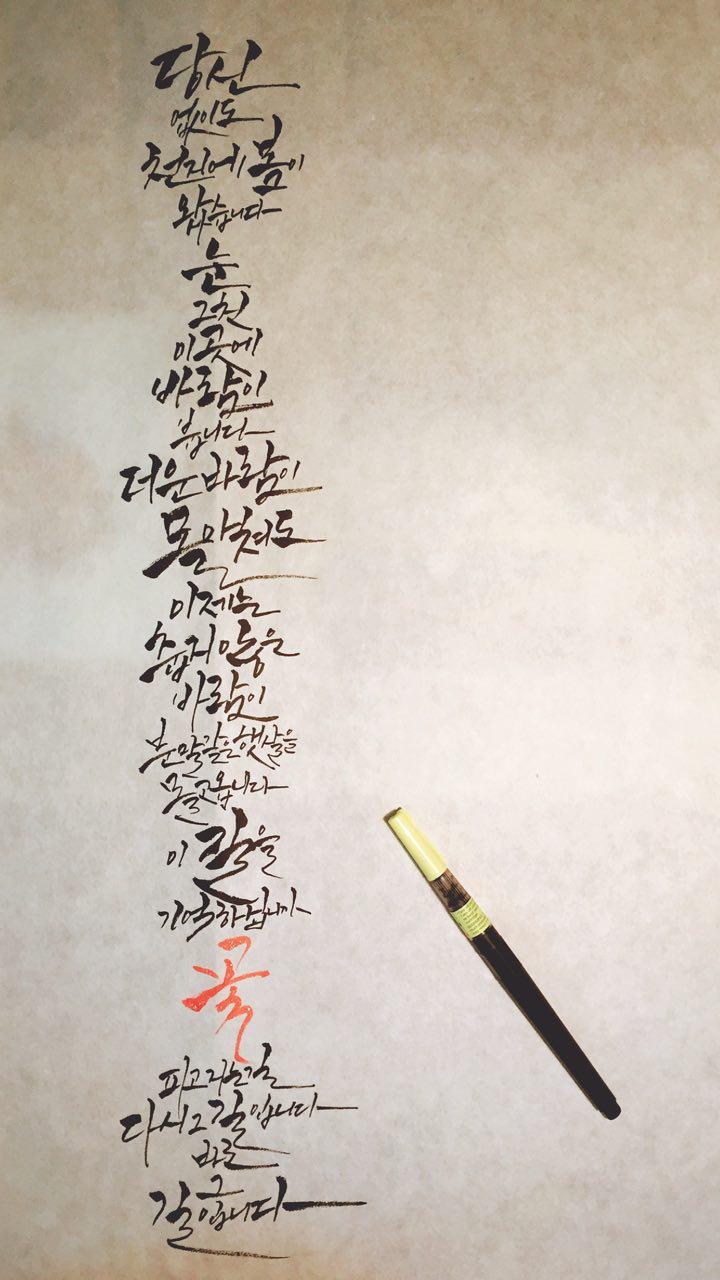 당신
없이도
천지에 봄이
왔습니다
눈
그친
이곳에
바람이
붑니다
더운 바람이
몰아쳐도
이제는
춥지 않은
바람이
분말같은 햇살을
몰고 옵니다
이 길을
기억하십니까
꽃
피고 지는 길
다시 그 길입니다
바로
그
길입니다